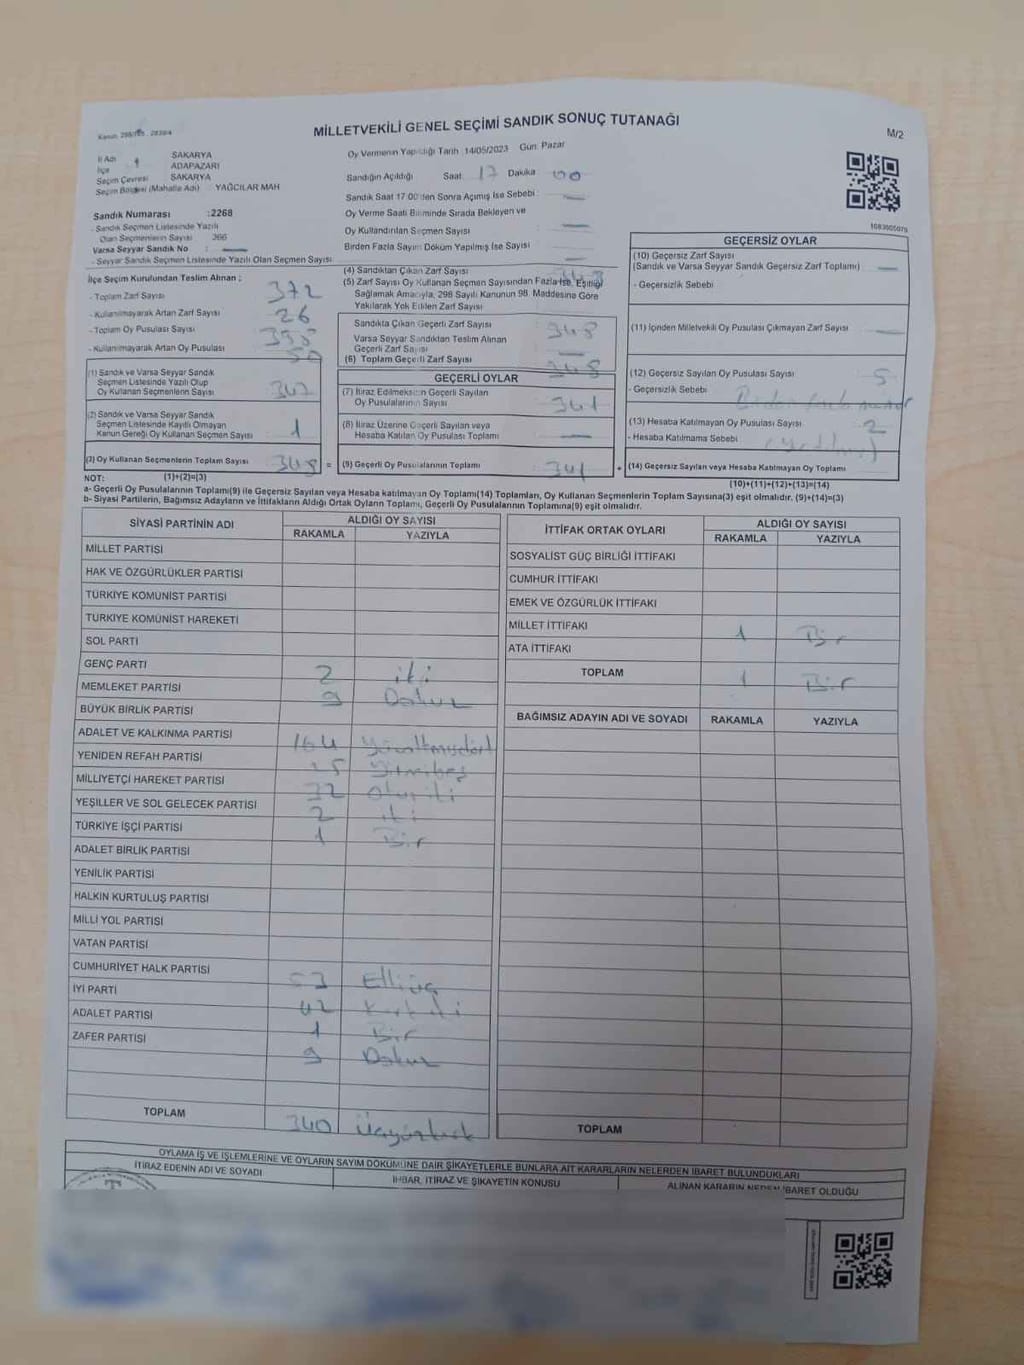 MİLLETVEKİLİ GENEL SEÇİMİ SANDIK SONUÇ TUTANAĞI
M/2
İl Adı SAKARYA
İlçe ADAPAZARI
Seçim Çevresi SAKARYA
Seçim Bölgesi (Mahalle Adı) YAĞCILAR MAH
Oy Vermenin Yapıldığı Tarih :14/05/2023 Gün: Pazar
Sandığın Açıldığı Saat 17 Dakika 00
Sandık Saat 17:00'den Sonra Açımış İse Sebebi :
Oy Verme Saati Bitiminde Sırada Bekleyen ve
Oy Kullandırılan Seçmen Sayısı
Birden Fazla Sayım Döküm Yapılmış İse Sayısı
Sandık Numarası :2268
- Sandık Seçmen Listesinde Yazılı
Olan Seçmenlerin Sayısı 366
Varsa Seyyar Sandık No :
- Seyyar Sandık Seçmen Listesinde Yazılı Olan Seçmen Sayısı
İlçe Seçim Kurulundan Teslim Alınan :
- Toplam Zarf Sayısı 372
- Kullanılmayarak Artan Zarf Sayısı 26
- Toplam Oy Pusulası Sayısı
- Kullanılmayarak Artan Oy Pusulası
(1) Sandık ve Varsa Seyyar Sandık
Seçmen Listesinde Yazılı Olup
Oy Kullanan Seçmenlerin Sayısı 347
(2) Sandık ve Varsa Seyyar Sandık
Seçmen Listesinde Kayıtlı Olmayan
Kanun Gereği Oy Kullanan Seçmen Sayısı 1
(3) Oy Kullanan Seçmenlerin Toplam Sayısı 348 =
(1)+(2)=(3)
(4) Sandıktan Çıkan Zarf Sayısı 348
(5) Zarf Sayısı Oy Kullanan Seçmen Sayısından Fazla İse, Eşitliği
Sağlamak Amacıyla, 298 Sayılı Kanunun 98. Maddesine Göre
Yakılarak Yok Edilen Zarf Sayısı
Sandıkta Çıkan Geçerli Zarf Sayısı 348
Varsa Seyyar Sandıktan Teslim Alınan
Geçerli Zarf Sayısı
(6) Toplam Geçerli Zarf Sayısı 348
GEÇERLİ OYLAR
(7) İtiraz Edilmeksizin Geçerli Sayılan
Oy Pusulalarının Sayısı 341
(8) İtiraz Üzerine Geçerli Sayılan veya
Hesaba Katılan Oy Pusulası Toplamı
(9) Geçerli Oy Pusulalarının Toplamı 341 +
1083005079
GEÇERSİZ OYLAR
(10) Geçersiz Zarf Sayısı
(Sandık ve Varsa Seyyar Sandık Geçersiz Zarf Toplamı)
- Geçersizlik Sebebi
(11) İçinden Milletvekili Oy Pusulası Çıkmayan Zarf Sayısı
(12) Geçersiz Sayılan Oy Pusulası Sayısı 5
- Geçersizlik Sebebi Birden fazla
(13) Hesaba Katılmayan Oy Pusulası Sayısı 2
- Hesaba Katılmama Sebebi
(14) Geçersiz Sayılan veya Hesaba Katılmayan Oy Toplamı
(10)+(11)+(12)+(13)=(14)
NOT:
a- Geçerli Oy Pusulalarının Toplamı(9) ile Geçersiz Sayılan veya Hesaba katılmayan Oy Toplamı(14) Toplamları, Oy Kullanan Seçmenlerin Toplam Sayısına(3) eşit olmalıdır. (9)+(14)=(3)
b- Siyasi Partilerin, Bağımsız Adayların ve İttifakların Aldığı Ortak Oyların Toplamı, Geçerli Oy Pusulalarının Toplamına(9) eşit olmalıdır.
SİYASİ PARTİNİN ADI ALDIĞI OY SAYISI
RAKAMLA YAZIYLA
MİLLET PARTİSİ
HAK VE ÖZGÜRLÜKLER PARTİSİ
TÜRKİYE KOMÜNİST PARTİSİ
TÜRKİYE KOMÜNİST HAREKETİ
SOL PARTİ
GENÇ PARTİ 2 iki
MEMLEKET PARTİSİ 9 Dokuz
BÜYÜK BİRLİK PARTİSİ
ADALET VE KALKINMA PARTİSİ 164 Yüzaltmışdört
YENİDEN REFAH PARTİSİ 25 Yirmibeş
MİLLİYETÇİ HAREKET PARTİSİ 32 Otuziki
YEŞİLLER VE SOL GELECEK PARTİSİ 2 iki
TÜRKİYE İŞÇİ PARTİSİ 1 Bir
ADALET BİRLİK PARTİSİ
YENİLİK PARTİSİ
HALKIN KURTULUŞ PARTİSİ
MİLLİ YOL PARTİSİ
VATAN PARTİSİ
CUMHURİYET HALK PARTİSİ 53 Elliüç
İYİ PARTİ 42 Kırkiki
ADALET PARTİSİ 1 Bir
ZAFER PARTİSİ 9 Dokuz
TOPLAM 340 Üçyüzkırk
İTTİFAK ORTAK OYLARI ALDIĞI OY SAYISI
RAKAMLA YAZIYLA
SOSYALİST GÜÇ BİRLİĞİ İTTİFAKI
CUMHUR İTTİFAKI
EMEK VE ÖZGÜRLÜK İTTİFAKI
MİLLET İTTİFAKI 1 Bir
ATA İTTİFAKI
TOPLAM 1 Bir
BAĞIMSIZ ADAYIN ADI VE SOYADI RAKAMLA YAZIYLA
TOPLAM
OYLAMA İŞ VE İŞLEMLERİNE VE OYLARIN SAYIM DÖKÜMÜNE DAİR ŞİKAYETLERLE BUNLARA AİT KARARLARIN NELERDEN İBARET BULUNDUKLARI
İTİRAZ EDENİN ADI VE SOYADI
İHBAR, İTİRAZ VE ŞİKAYETİN KONUSU
ALINAN KARARIN NEDEN İBARET OLDUĞU